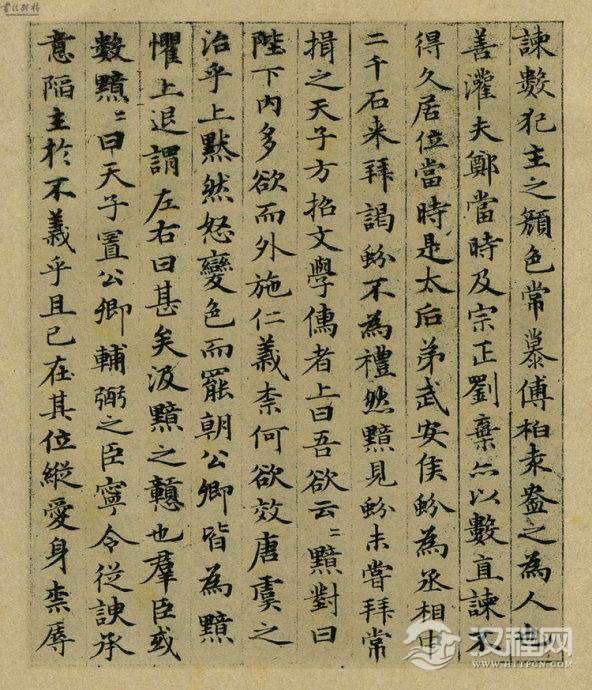 諫數犯主之顏色常慕傅柏袁盎之為人也
善灌夫鄭當時及宗正劉棄亦以數直諫不
得久居位當時是太后弟武安侯蚡為丞相中
二千石来拜謁蚡不為禮然黯見蚡未嘗拜常
揖之天子方招文學儒者上曰吾欲云〻黯對曰
陛下內多欲而外施仁義柰何欲效唐虞之
治乎上黙然怒變色而罷朝公卿皆為黯
懼上退謂左右曰甚矣汲黯之戇也羣臣或
數黯〻曰天子置公卿輔弼之臣寧令從諛承
意陷主於不義乎且已在其位縱愛身柰辱
汉程网
WWW.HTTPCN.COM